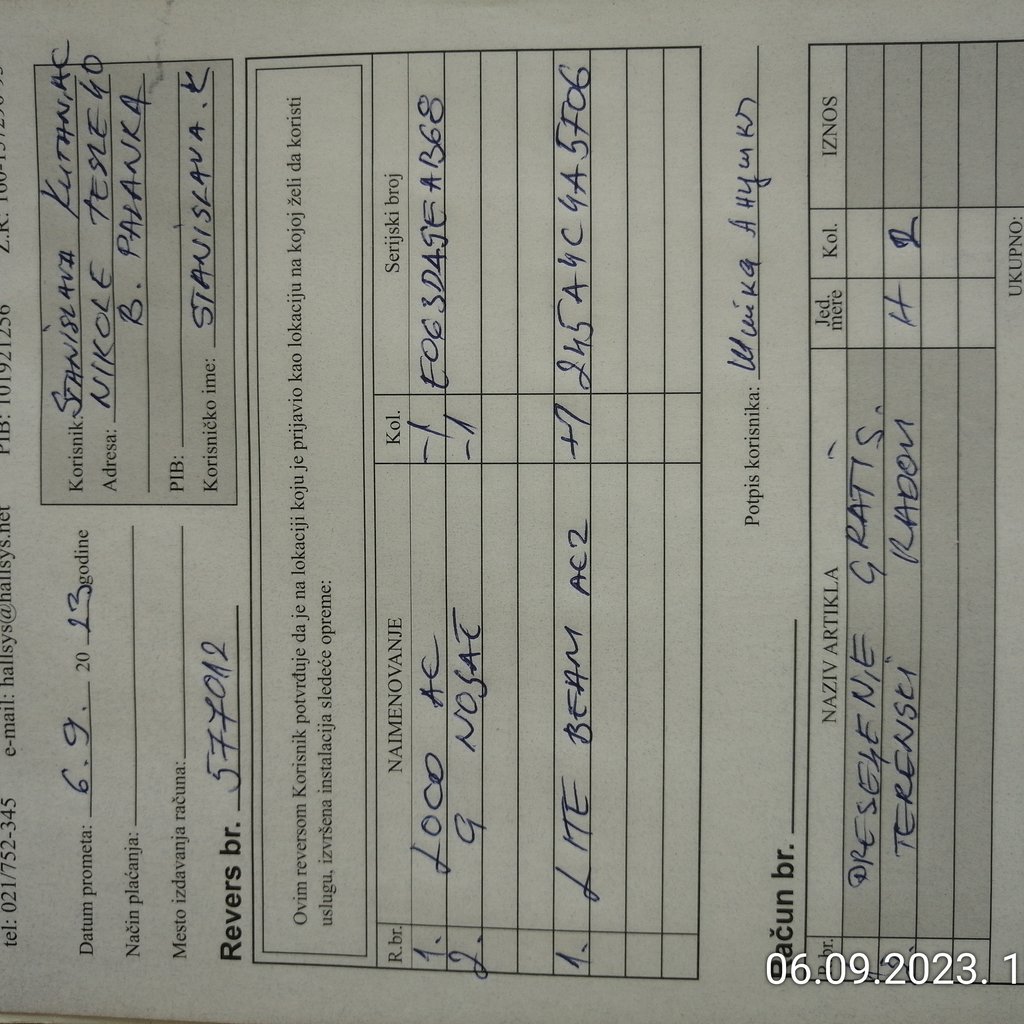 tel: 021/752-345 e-mail: hallsys@hallsys.net PIB: 101921256
Datum prometa: 6. 9. 20 23 godine
Način plaćanja:
Mesto izdavanja računa:
Revers br. 577012
Korisnik: STANISLAVA KUTANJAC
Adresa: NIKOLE TESLE 40
B. PALANKA
PIB:
Korisničko ime: STANISLAVA.K
Ovim reversom Korisnik potvrđuje da je na lokaciji koju je prijavio kao lokaciju na kojoj želi da koristi
uslugu, izvršena instalacija sledeće opreme:
R.br. NAIMENOVANJE Kol. Serijski broj
1. LOCO AC -1 E063DA5EAB68
2. G NOSAČ -1
1. LITE BEAM AC2 +1 245A4C4A5F06
Potpis korisnika:
Račun br.
R. br. NAZIV ARTIKLA Jed. mere Kol. IZNOS
PRESELJENJE GRATIS.
2. TERENSKI RADOVI H 2
UKUPNO:
06.09.2023. 1